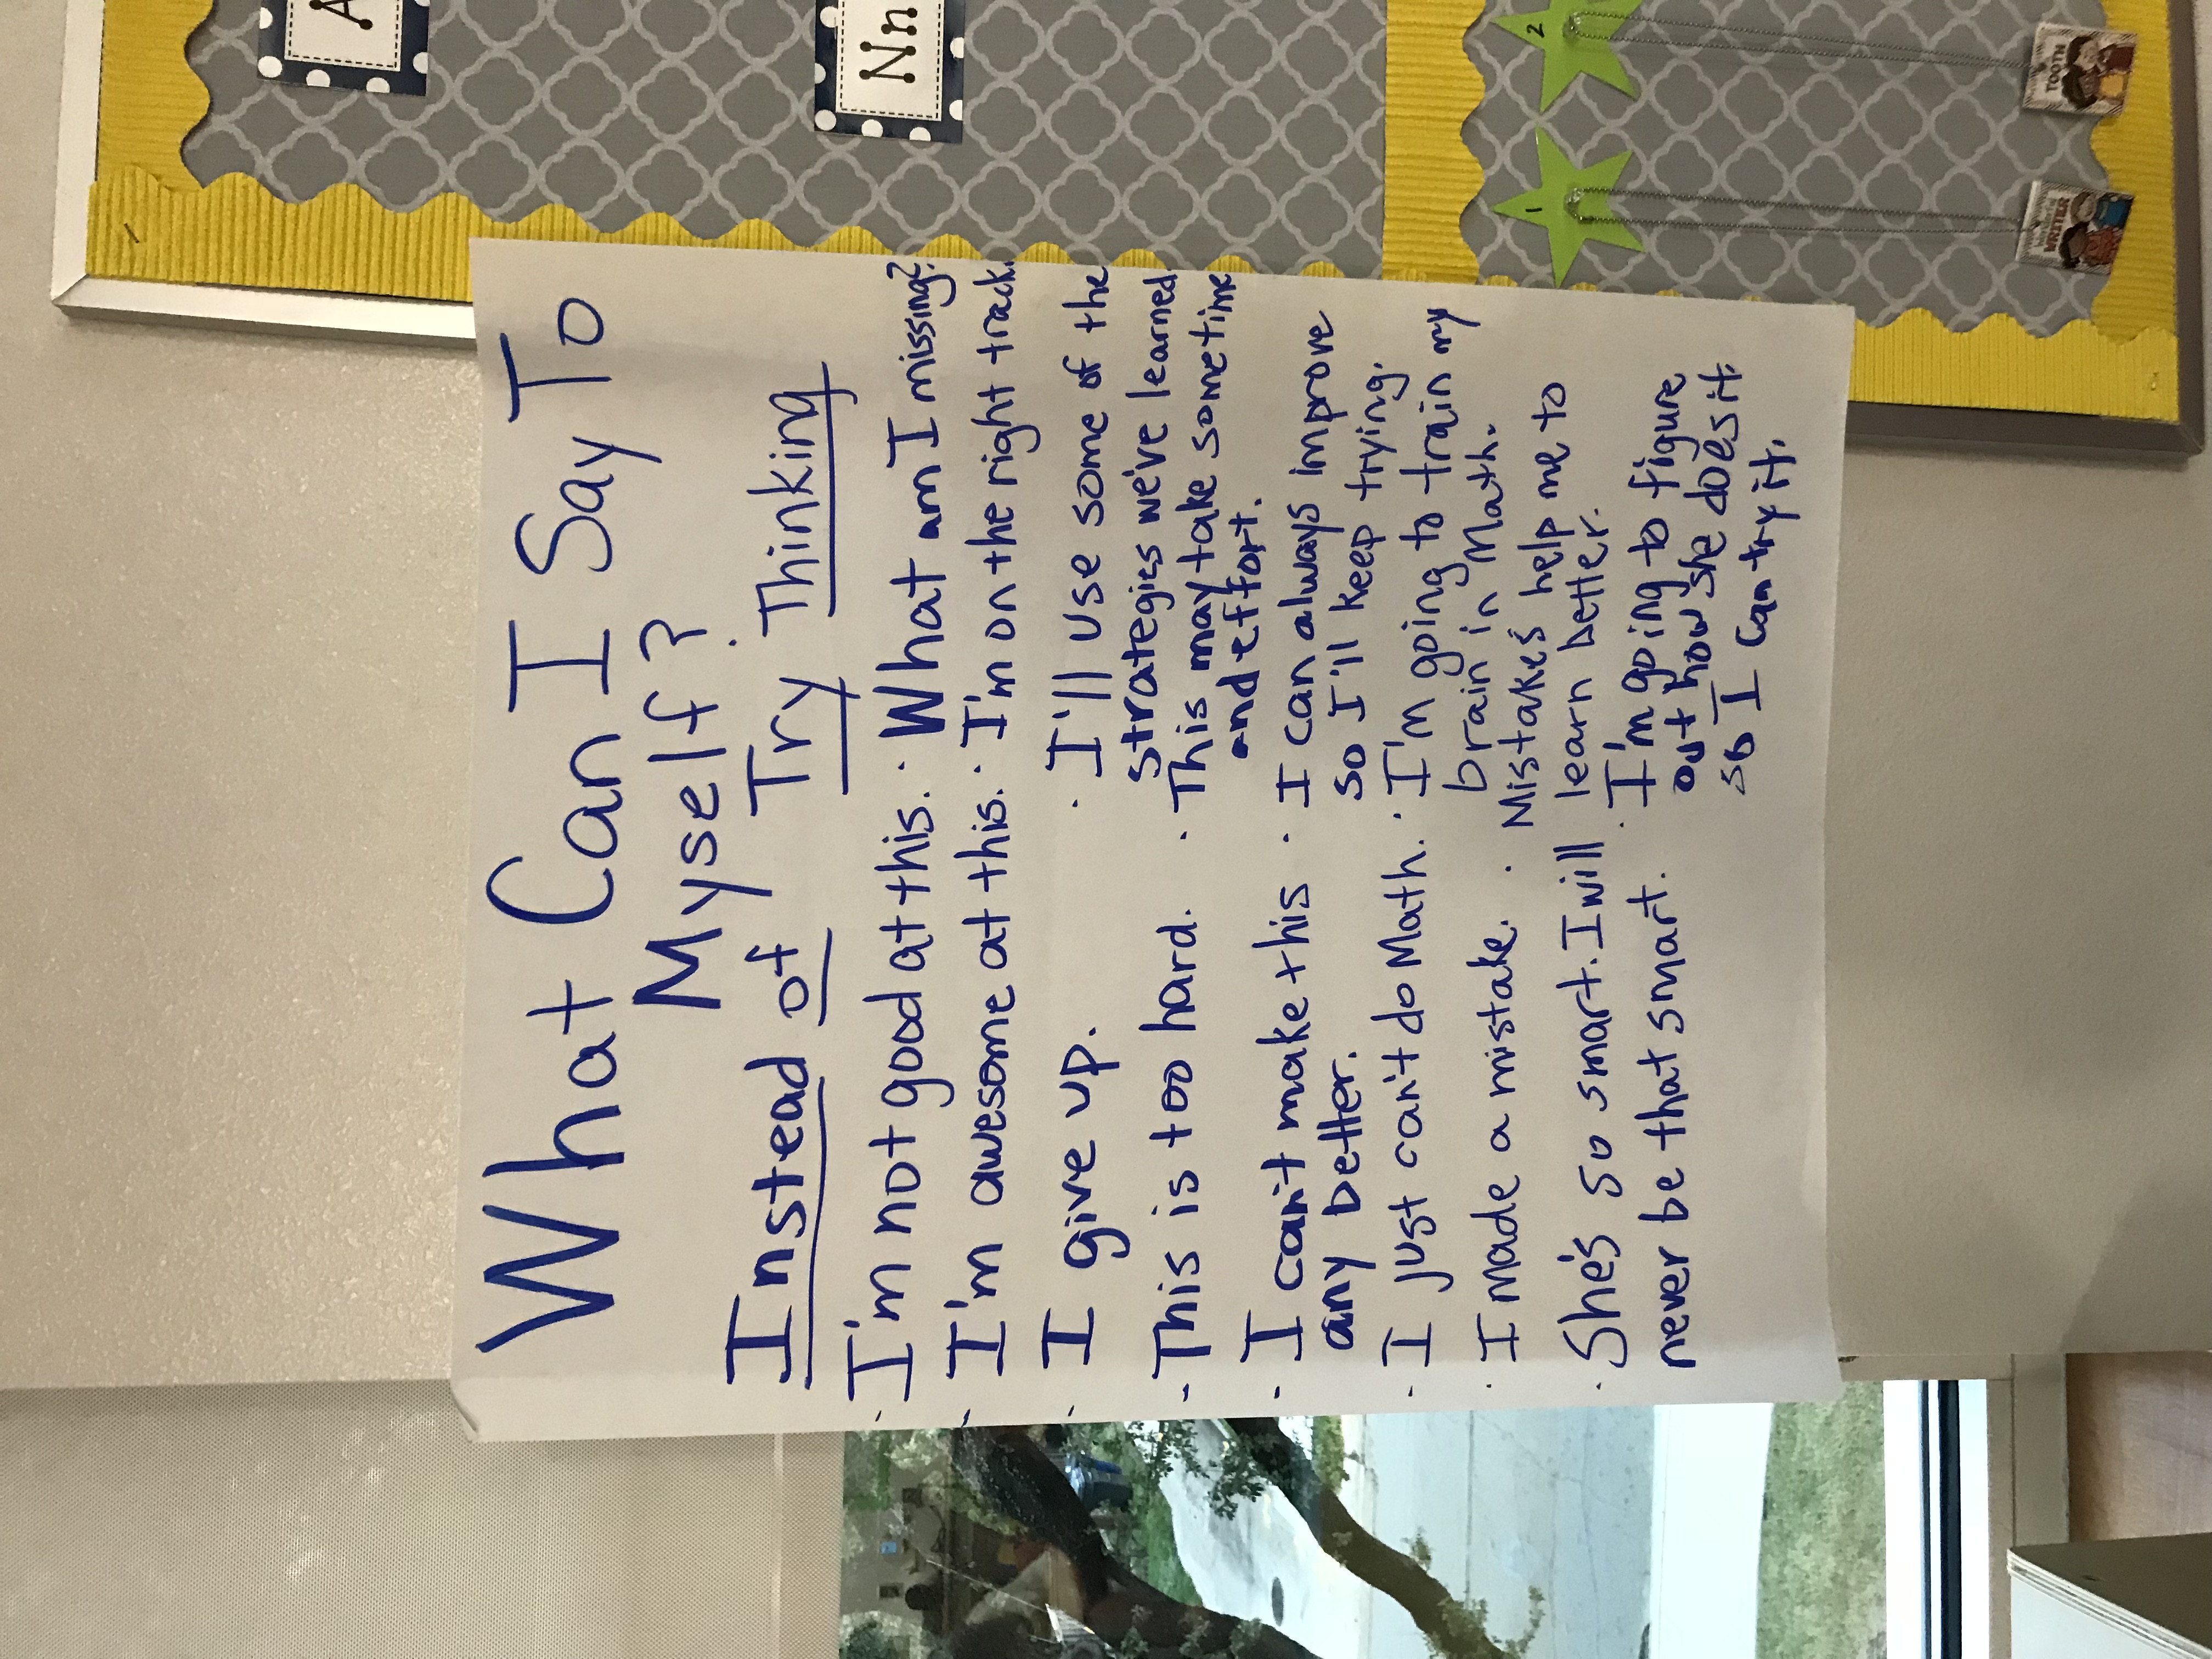 What Can I Say To
Myself?
Instead of Try Thinking
· I'm not good at this. · What am I missing?
· I'm awesome at this. · I'm on the right track.
· I give up. · I'll use some of the
strategies we've learned
· This is too hard. · This may take some time
and effort.
· I can't make this · I can always improve
any better. so I'll keep trying.
· I just can't do Math. · I'm going to train my
brain in Math.
· I made a mistake. · Mistakes help me to
learn better.
· She's so smart. I will · I'm going to figure
never be that smart. out how she does it
so I can try it.
A
Nn
1
2
TOOTH